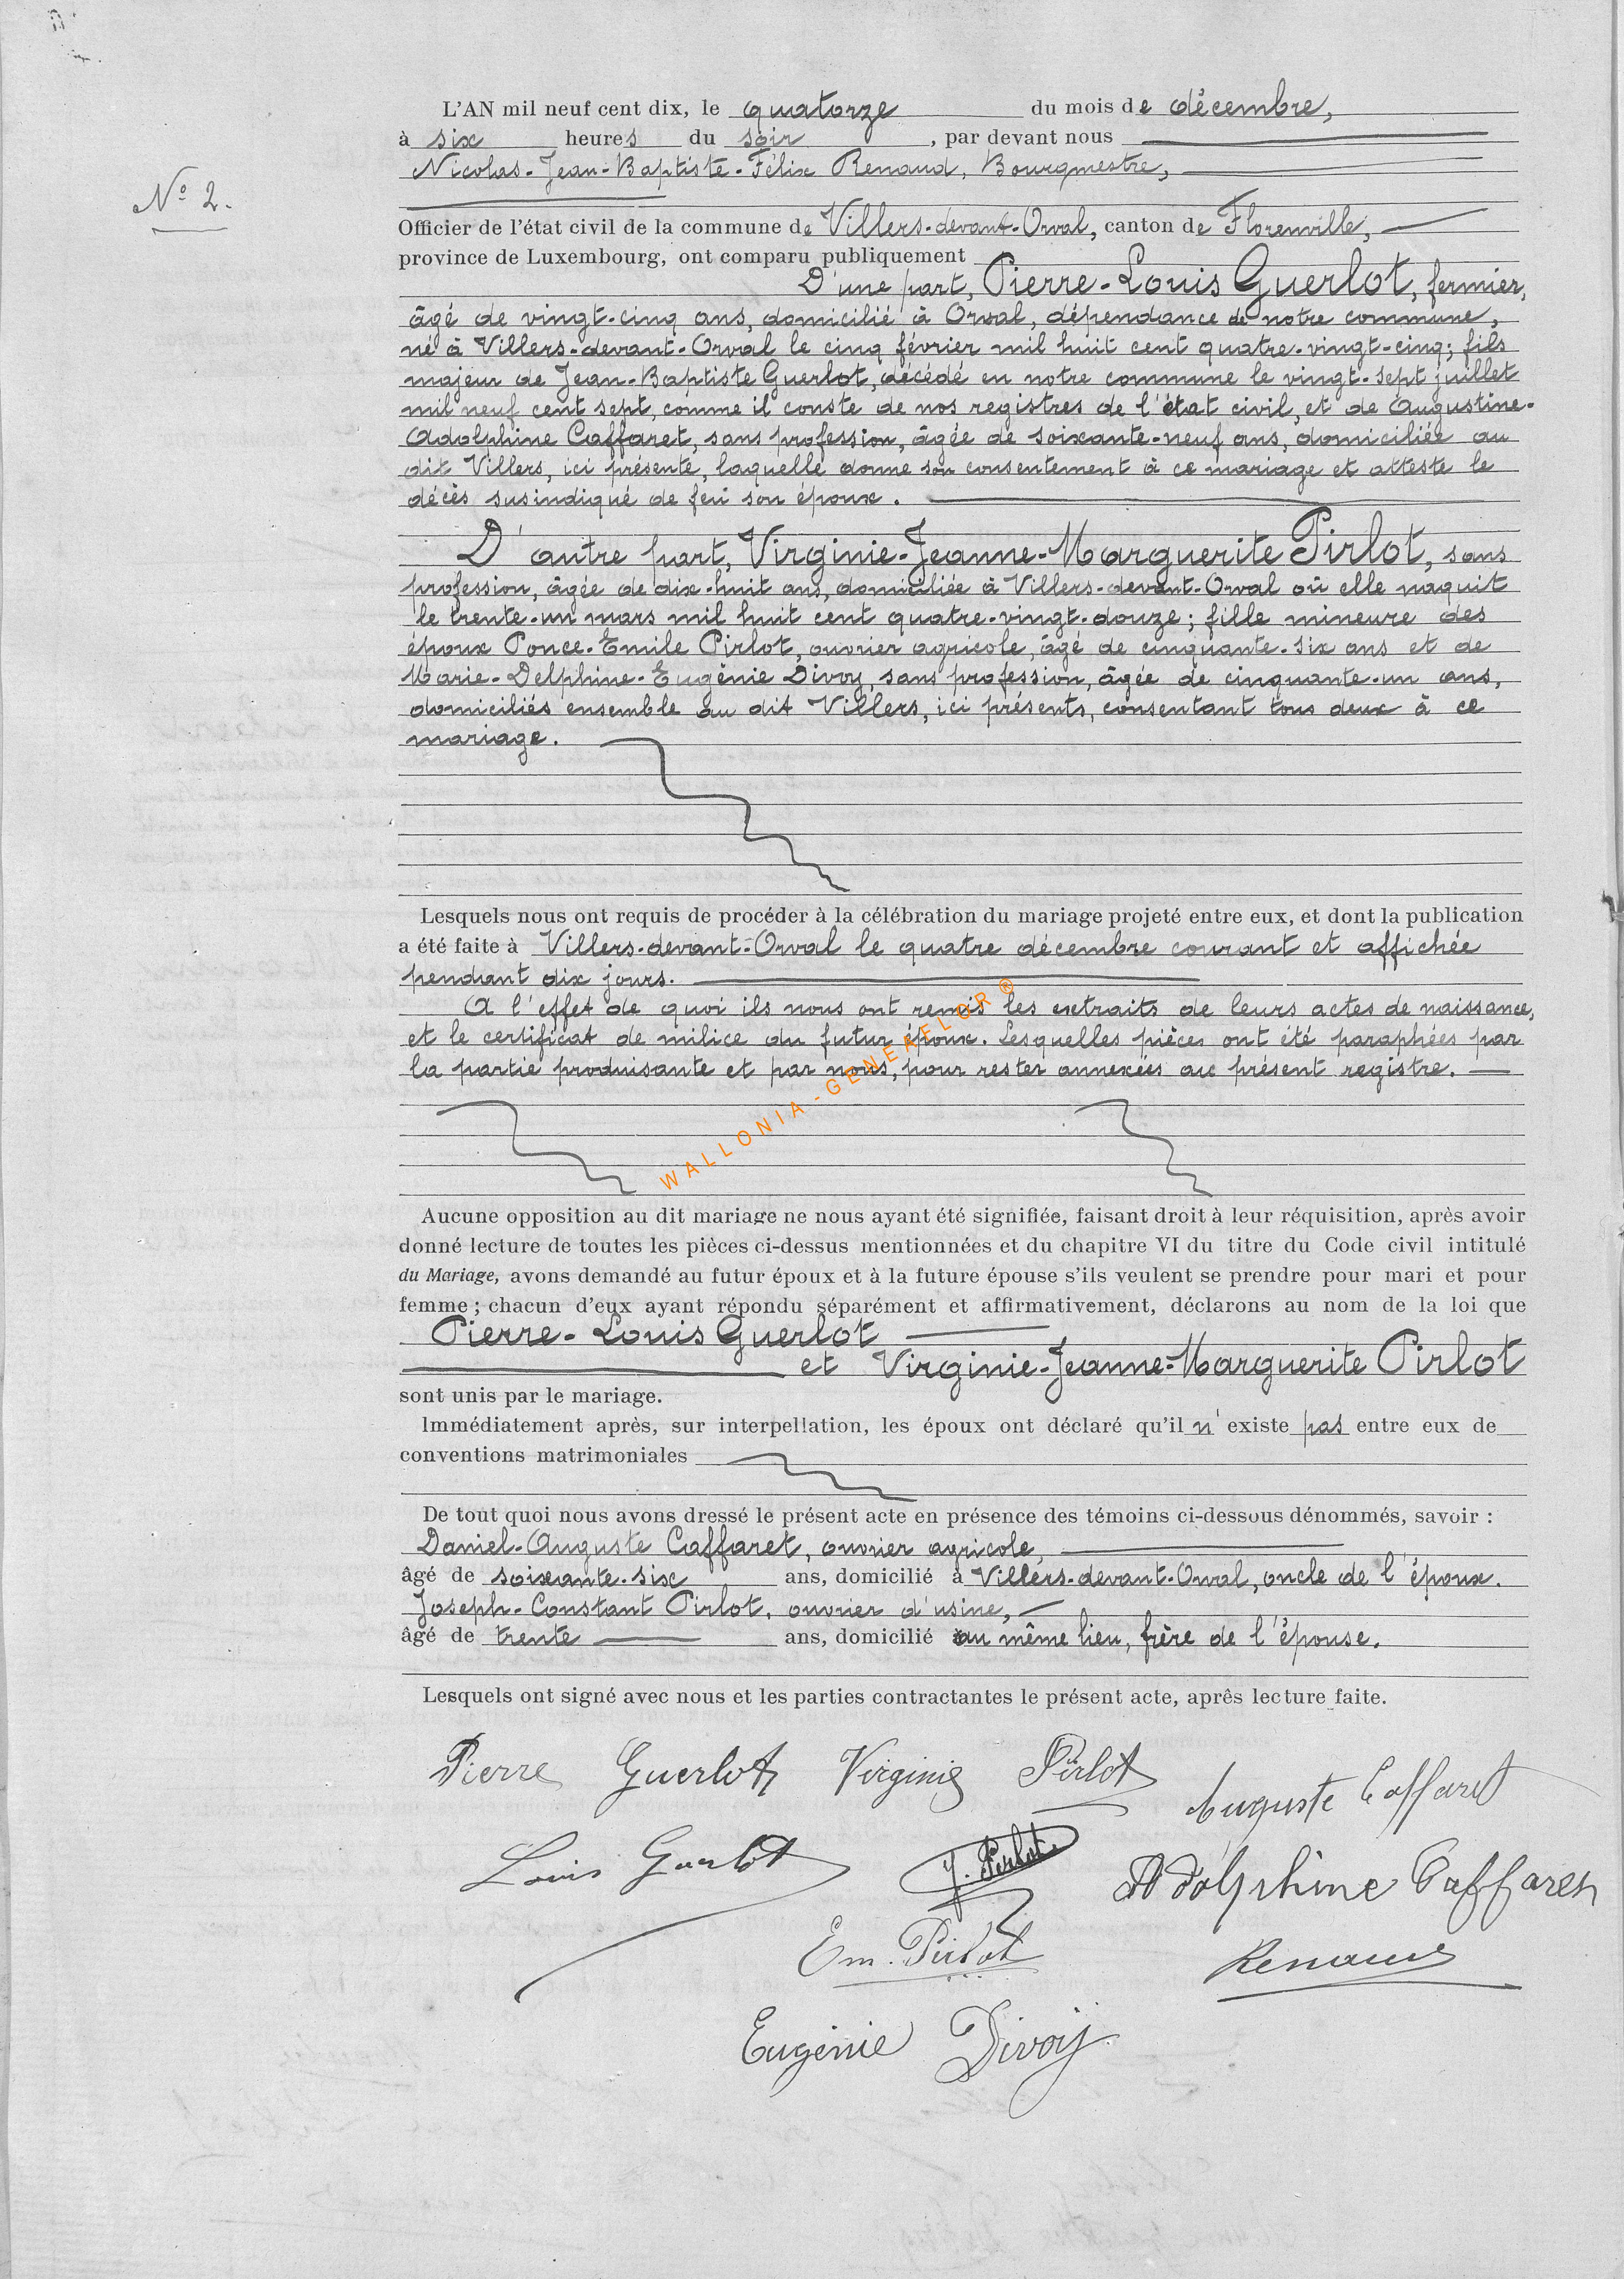 L'AN mil neuf cent dix, le quatorze du mois de décembre,
à six heures du soir, par devant nous
Nicolas-Jean-Baptiste-Félix Renaud, Bourgmestre,
N° 2.
Officier de l'état civil de la commune de Villers-devant-Orval, canton de Florenville,
province de Luxembourg, ont comparu publiquement
D'une part, Pierre-Louis Guerlot, fermier,
âgé de vingt-cinq ans, domicilié à Orval, dépendance de notre commune,
né à Villers-devant-Orval le cinq février mil huit cent quatre-vingt-cinq; fils
majeur de Jean-Baptiste Guerlot, décédé en notre commune le vingt-sept juillet
mil neuf cent sept, comme il conste de nos registres de l'état civil, et de Augustine-
Adolphine Caffaret, sans profession, âgée de soixante-neuf ans, domiciliée au
dit Villers, ici présente, laquelle donne son consentement à ce mariage et atteste le
décès susindiqué de feu son époux.
D'autre part, Virginie-Jeanne-Marguerite Pirlot, sans
profession, âgée de dix-huit ans, domiciliée à Villers-devant-Orval où elle naquit
le trente-un mars mil huit cent quatre-vingt-douze; fille mineure des
époux Ponce-Emile Pirlot, ouvrier agricole, âgé de cinquante-six ans et de
Marie-Delphine-Eugénie Divoy, sans profession, âgée de cinquante-un ans,
domiciliés ensemble au dit Villers, ici présents, consentant tous deux à ce
mariage.
Lesquels nous ont requis de procéder à la célébration du mariage projeté entre eux, et dont la publication
a été faite à Villers-devant-Orval le quatre décembre courant et affichée
pendant dix jours.
A l'effet de quoi ils nous ont remis les extraits de leurs actes de naissance,
et le certificat de milice du futur époux. Lesquelles pièces ont été paraphées par
la partie produisante et par nous, pour rester annexées au présent registre.
WALLONIA-GENEAFLOR ®
Aucune opposition au dit mariage ne nous ayant été signifiée, faisant droit à leur réquisition, après avoir
donné lecture de toutes les pièces ci-dessus mentionnées et du chapitre VI du titre du Code civil intitulé
du Mariage, avons demandé au futur époux et à la future épouse s'ils veulent se prendre pour mari et pour
femme; chacun d'eux ayant répondu séparément et affirmativement, déclarons au nom de la loi que
Pierre-Louis Guerlot
et Virginie-Jeanne-Marguerite Pirlot
sont unis par le mariage.
Immédiatement après, sur interpellation, les époux ont déclaré qu'il n'existe pas entre eux de
conventions matrimoniales
De tout quoi nous avons dressé le présent acte en présence des témoins ci-dessous dénommés, savoir :
Daniel-Auguste Caffaret, ouvrier agricole,
âgé de soixante-six ans, domicilié à Villers-devant-Orval, oncle de l'époux.
Joseph-Constant Pirlot, ouvrier d'usine,
âgé de trente ans, domicilié au même lieu, frère de l'épouse.
Lesquels ont signé avec nous et les parties contractantes le présent acte, après lecture faite.
Pierre Guerlot Virginie Pirlot Auguste Caffaret
Louis Guerlot J. Pirlot Adolphine Caffaret
Em. Pirlot Renaud
Eugénie Divoy